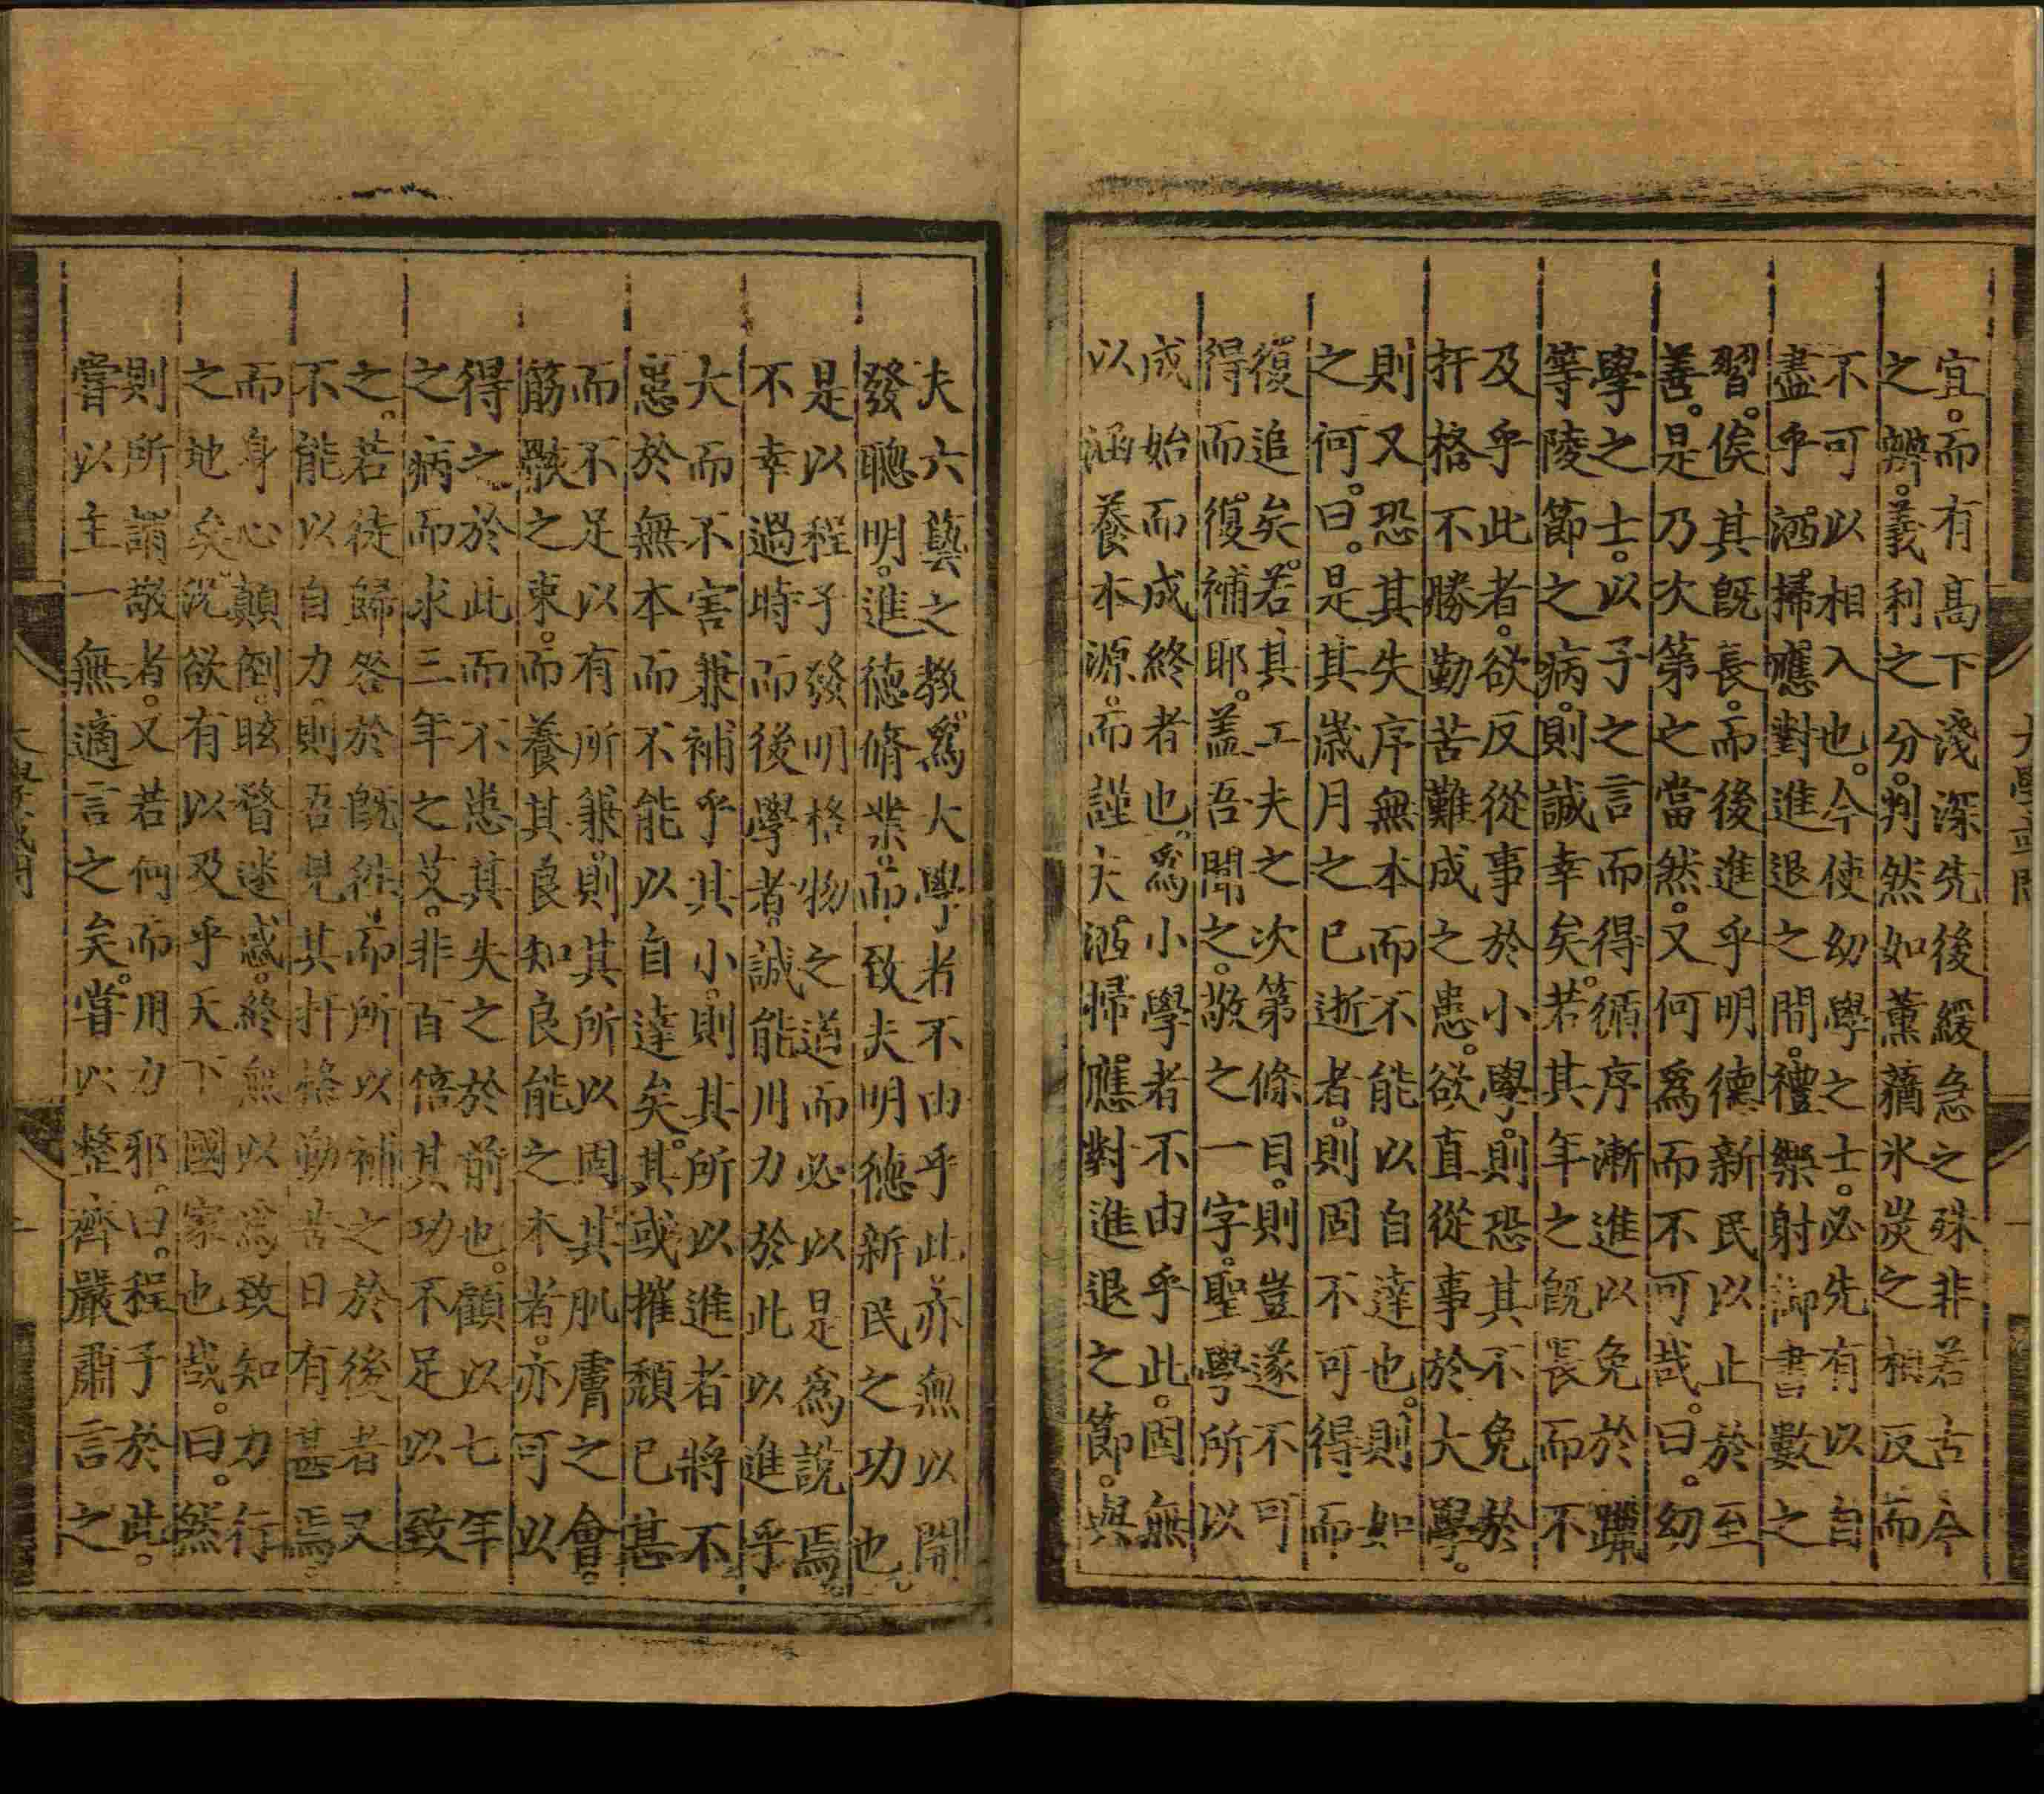 宜。而有高下淺深先後緩急之殊非若古今
之辨。義利之分。判然如薰蕕氷炭之相反而
不可以相入也。今使幼學之士。必先有以自
盡乎洒掃應對進退之間。禮樂射御書數之
習。俟其既長。而後進乎明德新民以止於至
善。是乃次第之當然。又何爲而不可哉。曰。幼
學之士。以子之言而得循序漸進以免於躐
等陵節之病。則誠幸矣。若其年之既長而不
及乎此者。欲反從事於小學。則恐其不免於
扞格不勝勤苦難成之患。欲直從事於大學。
則又恐其失序無本而不能以自達也。則如
之何。曰。是其歲月之已逝者。則固不可得而
復追矣。若其工夫之次第條目。則豈遂不可
得而復補耶。蓋吾聞之。敬之一字。聖學所以
成始而成終者也。爲小學者不由乎此。固無
以涵養本源。而謹夫洒掃應對進退之節。與
夫六藝之教。爲大學者不由乎此亦無以開
發聰明。進德脩業。而致夫明德新民之功也。
是以程子發明格物之道而必以是爲說焉。
不幸過時而後學者。誠能用力於此以進乎
大而不害兼補乎其小。則其所以進者將不
患於無本而不能以自達矣。其或摧頹已甚
而不足以有所兼。則其所以固其肌膚之會。
筋骸之束。而養其良知良能之本者。亦可以
得之於此而不患其失之於前也。顧以七年
之病而求三年之艾。非百倍其功不足以致
之。若徒歸咎於既往。而所以補之於後者又
不能以自力。則吾見其扞格勤苦日有甚焉。
而身心顛倒。眩瞀迷惑。終無以爲致知力行
之地矣。況欲有以及乎天下國家也哉。曰。然
則所謂敬者。又若何而用力邪。曰。程子於此。
嘗以主一無適言之矣。嘗以整齊嚴肅言之